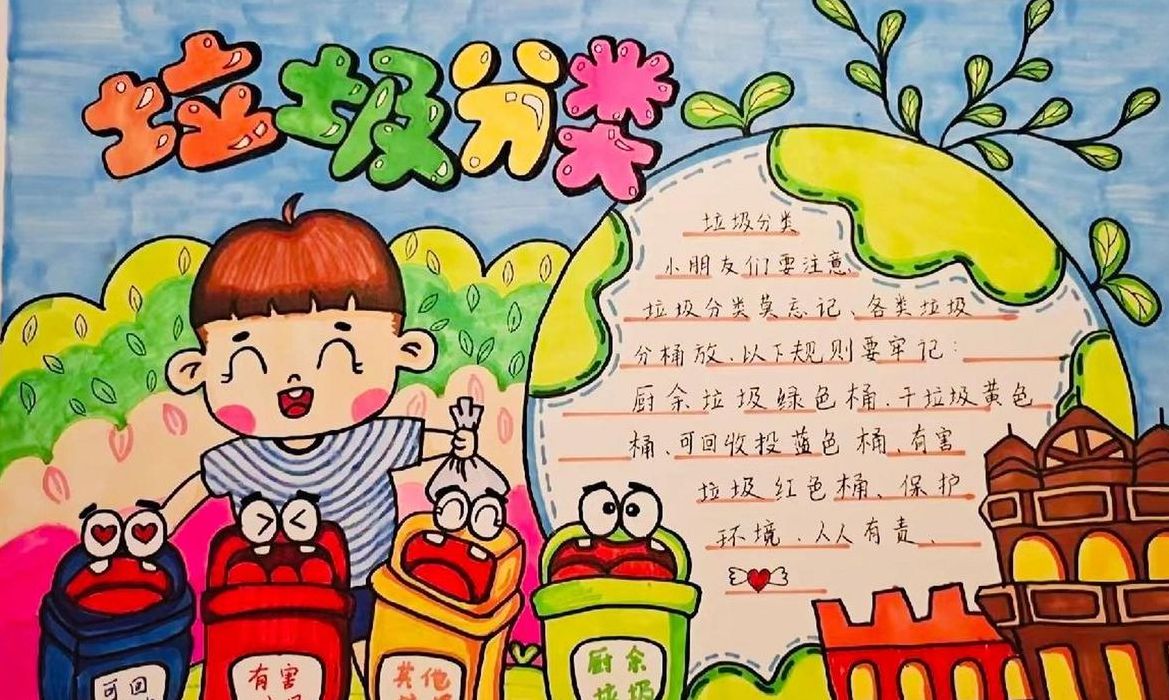 垃圾分类
垃圾分类
小朋友们要注意、
垃圾分类莫忘记、各类垃圾
分桶放、以下规则要牢记：
厨余垃圾绿色桶、干垃圾黄色
桶、可回收投蓝色桶、有害
垃圾红色桶、保护
环境、人人有责、
可回
有害
其他
厨余
垃圾